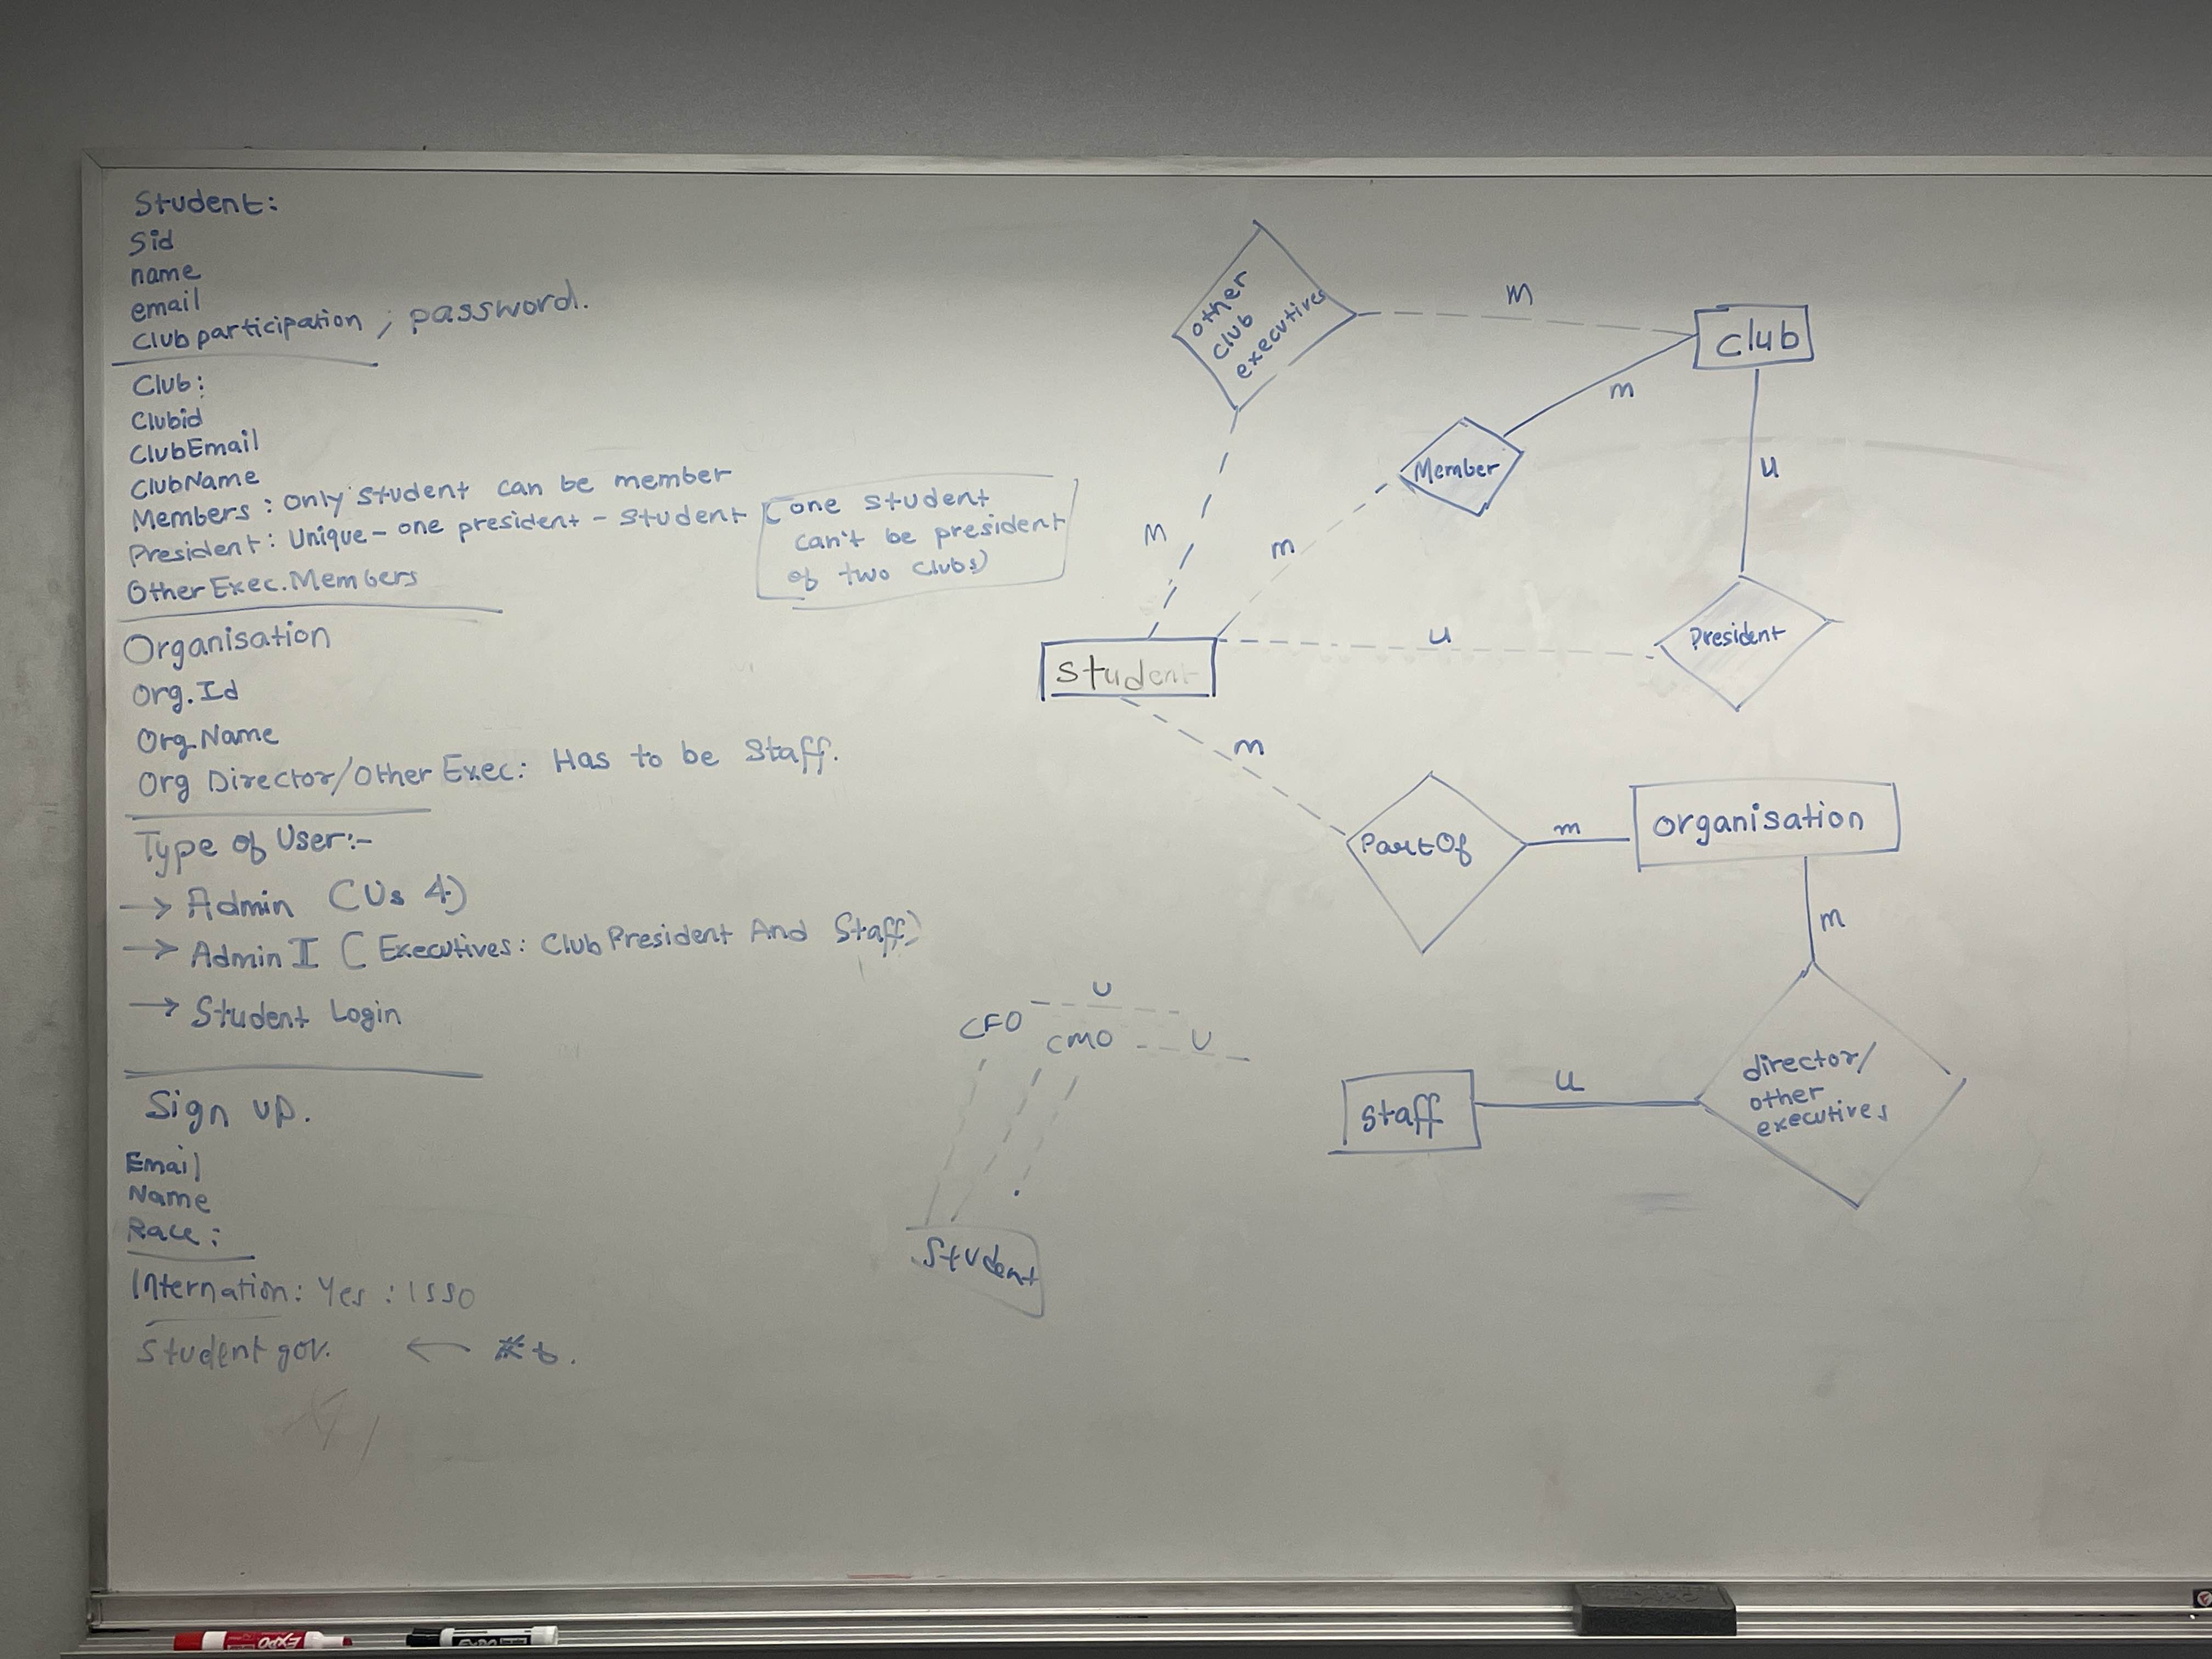 Student:
Sid
name
email
Club participation ; password.
Club:
Clubid
ClubEmail
ClubName
Members : only student can be member
President: Unique - one president - student
(one student
can't be president
of two clubs)
Other Exec. Members
Organisation
Org. Id
Org. Name
Org Director/Other Exec: Has to be Staff.
Type of User:-
→ Admin (Us 4)
→ Admin I ( Executives: Club President And Staff)
→ Student Login
Sign up.
Email
Name
Race :
Internation: Yes : ISSO
Student gov. ←
other
club
executives
m
club
m
Member
u
M
m
student
u
President
m
PartOf
m
organisation
m
director/
other
executives
u
staff
U
CFO
CMO
U
Student
EXPO